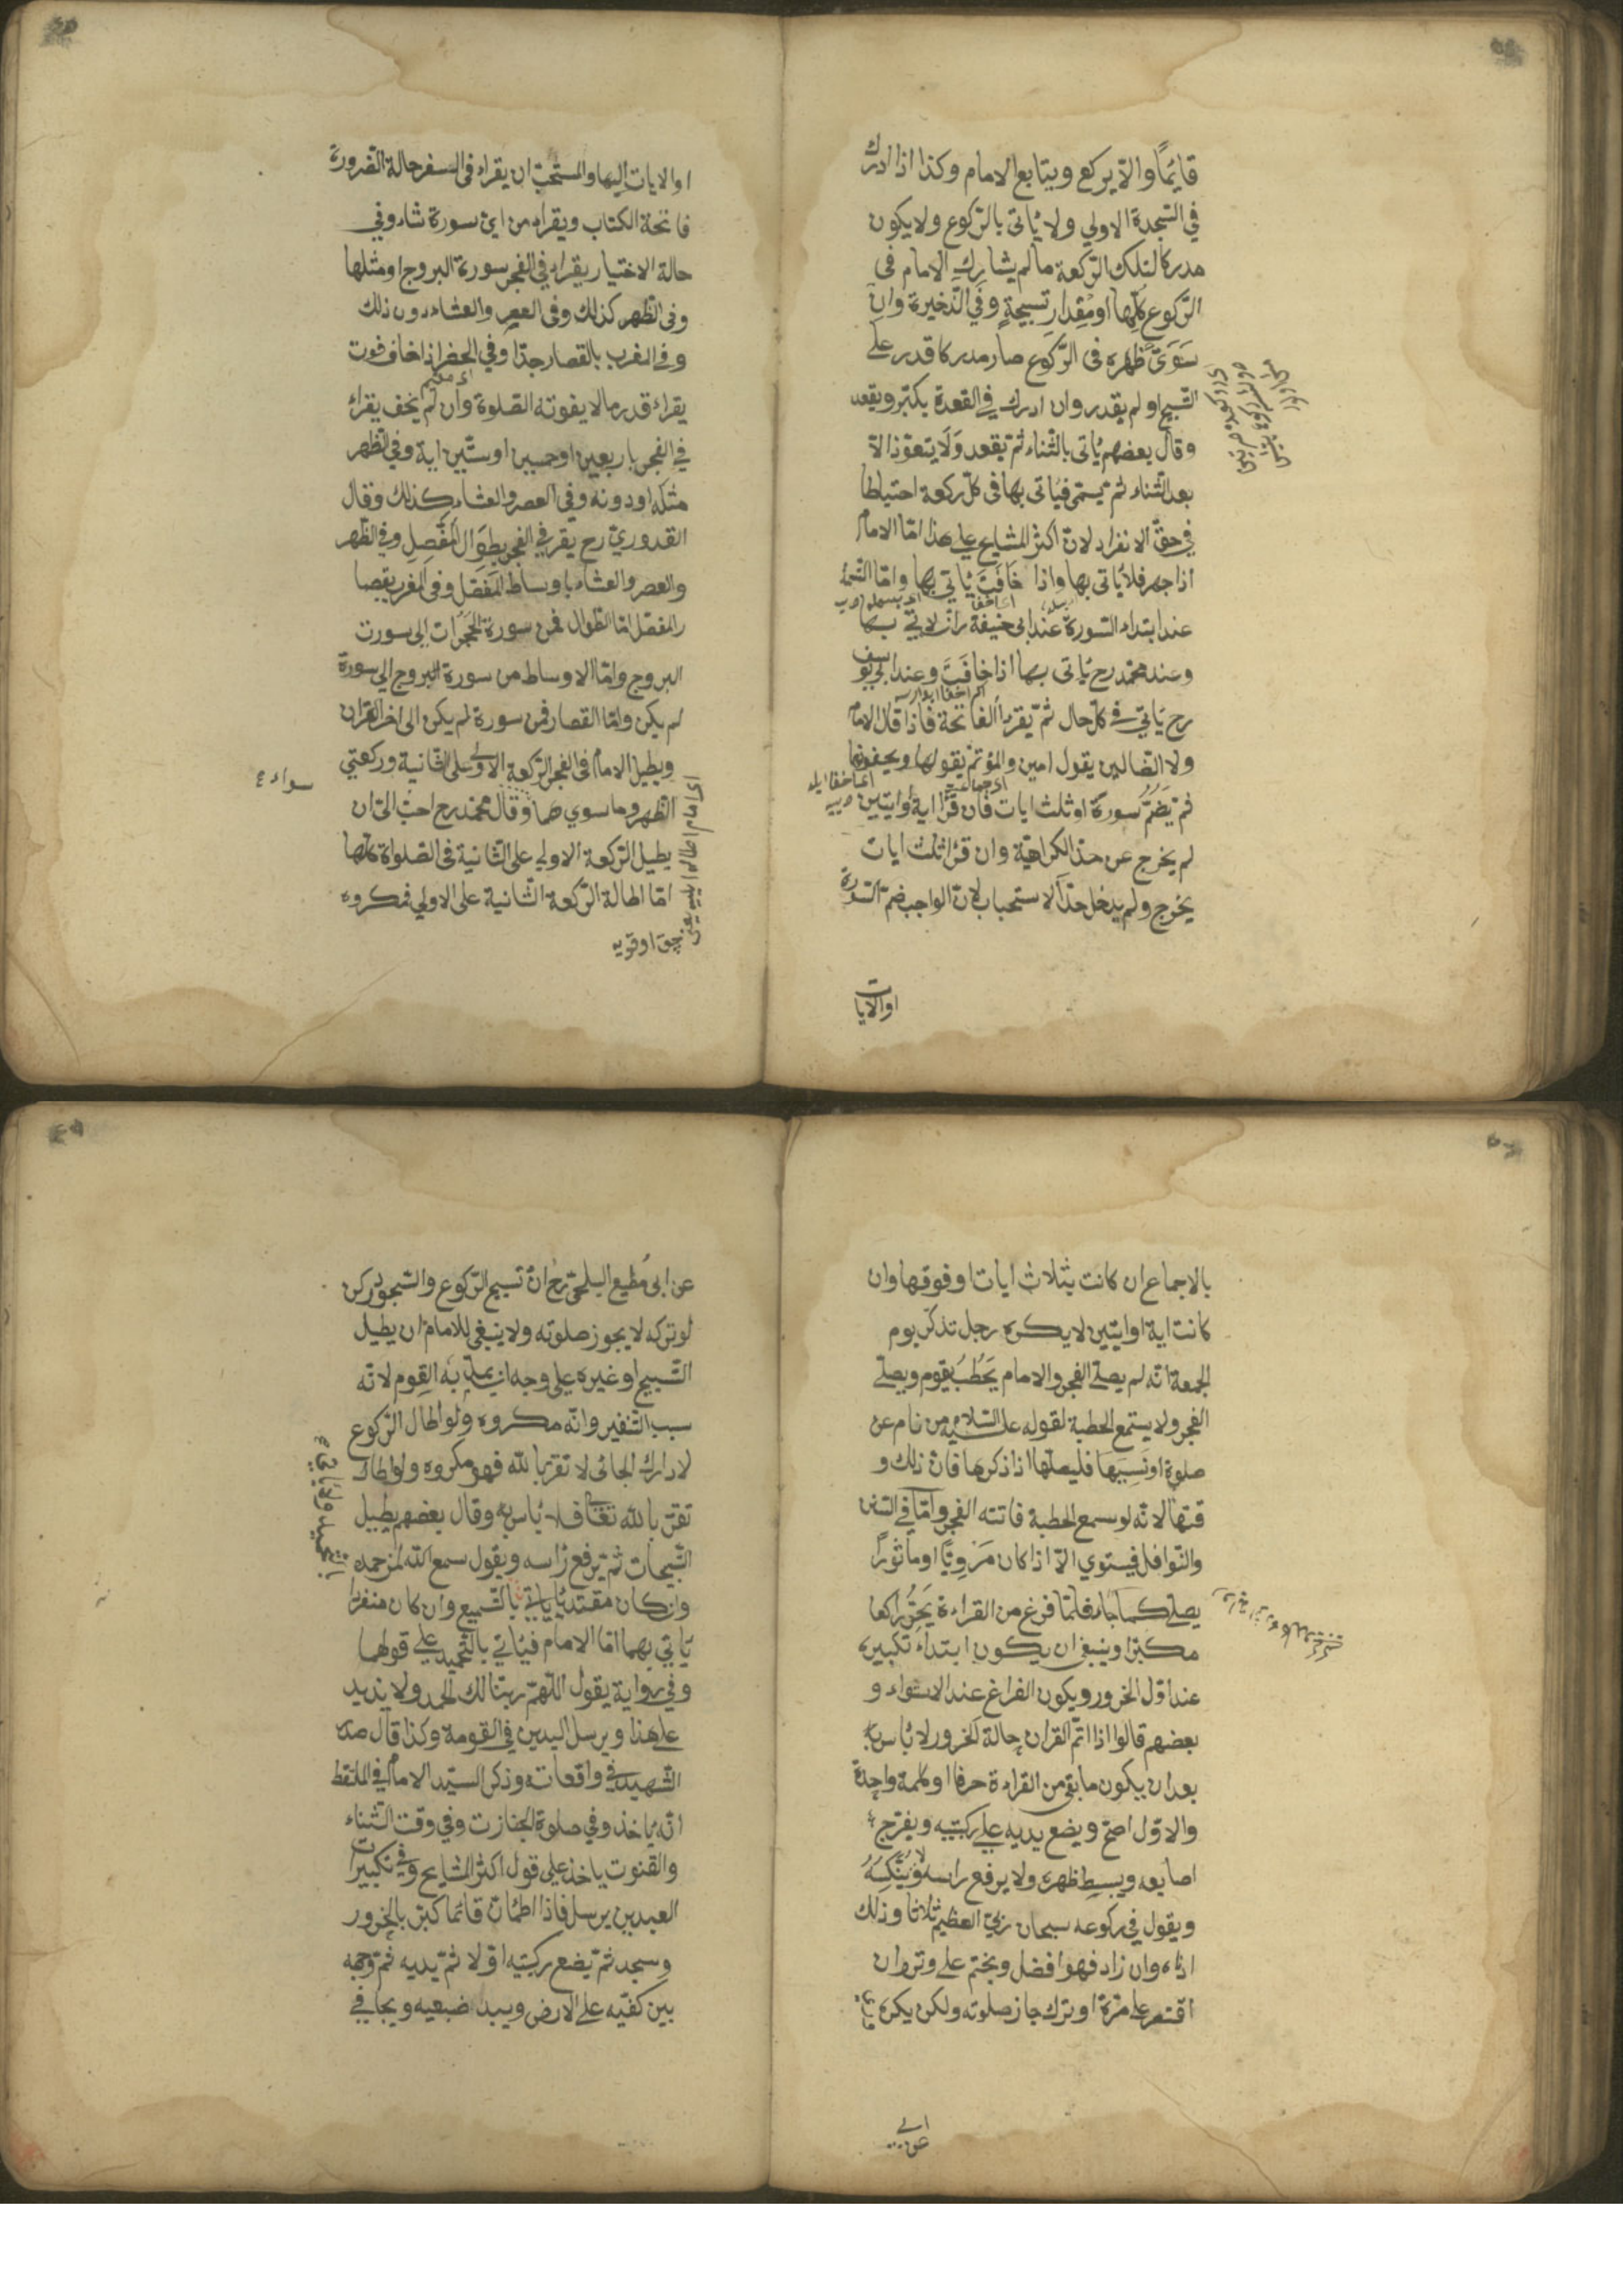 قائمًا والّا يركع ويتابع الامام وكذا اذا ادرك
في السّجدة الاولي ولا يُاتى بالرّكوع ولا يكون
مدركا لتلك الرّكعة ما لم يشارك الامام فى
الرّكوع كلّها او مقدار تسبيحةٍ وفي الذّخيرة وان
سَوَىّٰ ظهره فى الرّكوع صار مدركا قدر على
التّسبيح او لم يقدر وان ادرك في القعدة يكبّر ويقعد
وقال بعضهم يُاتى بالثّناء ثمّ يقعد وَلَا يتعوّذ الّا
بعد الثّناء ثمّ يسمّى فيُاتى بها فى كلّ ركعة احتياطا
في حقّ الانفراد لانّ اكثر المشايح على هذا امّا الامام
اذا جهر فلا يُاتى بها واذا خَافَتَ يُاتي بها وامّا التسمية
عند ابتداء السّورة عند ابى حنيفة رح انّه لا يُاتى بها
وعند محمّد رح يُاتى بها اذا خَافَتَ وعند ابى يوسف
رح يَاتي في كلّ حال ثمّ يقرأ الفاتحة فاذا قال الامام
ولا الضّالين يقول امين والمؤتمّ يقولها ويخفونها
ثم يَضُمُّ سورة او ثلث ايات فان قرأ اية او ايتين
لم يخرج عن حدّ الكراهيّة وان قرأ ثلث ايات
يخرج ولم يدخل حدّ الاستحباب لانّ الواجب ضمّ السّورة
اوالايات
اوالايات اليها والمستحبّ ان يقراء فى السفر حالة الضّرورة
فاتحة الكتاب ويقراء من ايّ سورة شاء وفي
حالة الاختيار يقراء في الفجر سورة البروج او مثلها
وفى الظّهر كذلك وفى العصر والعشاء دون ذلك
وفي المغرب بالقصار جدّا وفي الحضر اذا خاف فوت
يقراء قدر ما لا يفوته الصّلوة وان لم يخف يقراء
في الفجر باربعين او خمسين او ستّين اية وفي الظهر
مثله او دونه وفي العصر والعشاء كذلك وقال
القدوريّ رح يقرأ في الفجر بطِوَال المفَصّلِ وفي الظّهر
والعصر والعشاء باوساط المفصّل وفى المغرب بقصا
رالمفصّل امّا الطّوال فمن سورة الحُجُرَات الى سورت
البروج وامّا الاوساط من سورة البروج الى سورة
لم يكن وامّا القصار فمن سورة لم يكن الى اخر القران
ويطيل الامام فى الفجر الرّكعة الاولى على الثانية وركعتي
سواء
الظهر وما سوي هما وقال محمّد رح احبّ اليّ ان
يطيل الرّكعة الاولي على الثّانية فى الصّلواة كلّها
امّا اطالة الرّكعة الثّانية على الاولي فمكروه
بالاجماع ان كانت بثلاث ايات او فوقها وان
كانت اية او ايتين لا يكره رجل تذكّر يوم
الجمعة انّه لم يصلّي الفجر والامام يَخْطُبُ يقوم ويصلّي
الفجر ولا يستمع الخطبة لقوله عليه السّلام من نام عن
صلوة او نَسِيَهَا فليصلّها اذا ذكرها فانّ ذلك و
قتها لانّه لو سمع الخطبة فاتته الفجر وامّا في السّنن
والنّوافل فيستوي الّا اذا كان مَرْوِيًّا او ماثورًا
يصلّى كما جاء فلمّا فرغ من القراءة يَخِرُّ راكعا
مكبّرا وينبغي ان يكون ابتداءُ تكبيره
عند اوّل الخرور ويكون الفراغ عند الاستواء و
بعضهم قالوا اذا اتمّ القران حالة الخرور لا بُاس به
بعد ان يكون ما بقي من القراءة حرفا او كلمة واحدة
والاوّل اصحّ ويضع يديه على ركبتيه ويفرّج
اصابعه ويبسط ظهره ولا يرفع راسه ولا يُنَكِّسُهُ
ويقول في ركوعه سبحان ربّي العظيم ثلاثا وذلك
ادناه وان زاد فهو افضل ويختم على وتر وان
اقتصر على مرّة او ترك جاز صلوته ولكن يكره
عن ابى مُطيع البلخىّ رح انّ تسبيح الرّكوع والسّجود ركن
لو تركه لا يجوز صلوته ولا ينبغي للامام ان يطيل
التّسبيح او غيره على وجه يملّ به القوم لانّه
سبب التّنفير وانّه مكروه ولو اطال الرّكوع
لادراك الجائى لا تقرّبا لله فهو مكروه ولو اطال
تقرّبا لله تعالى فلا بُاس به وقال بعضهم يطيل
التّسبيحات ثمّ يرفع رُاسه ويقول سمع الله لمن حمده
وان كان مقتديا ياتي بالتّسميع وان كان منفردا
يُاتي بهما امّا الامام فيُاتي بالتّحميد على قولهما
وفي رواية يقول اللّهمّ ربّنا لك الحمد ولا يزيد
على هذا ويرسل اليدين في القومة وكذا قال صدر
الشّهيد في واقعاته وذكر السيّد الامام في الملتقط
انّه يُاخذ وفي صلوة الجنازت وفي وقت الثّناء
والقنوت ياخذ على قول اكثر المشايح وفي تكبيرات
العيدين يرسل فاذا اطمُانّ قائما كبّر بالخرور
وسجد ثمّ يضع ركبتيه اوّلا ثمّ يديه ثمّ وجهه
بين كفّيه على الارض ويبد ضبعيه ويجافي